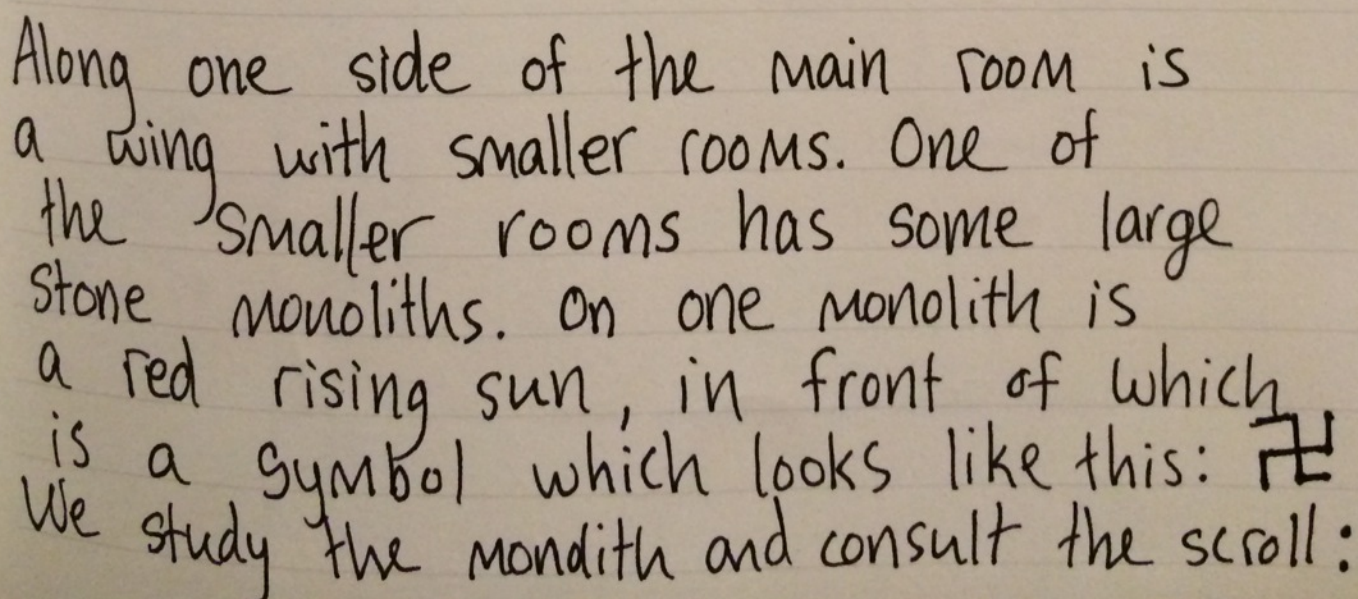 Along one side of the main room is
a wing with smaller rooms. One of
the smaller rooms has some large
stone monoliths. On one monolith is
a red rising sun, in front of which
is a symbol which looks like this: 卍
We study the monolith and consult the scroll: